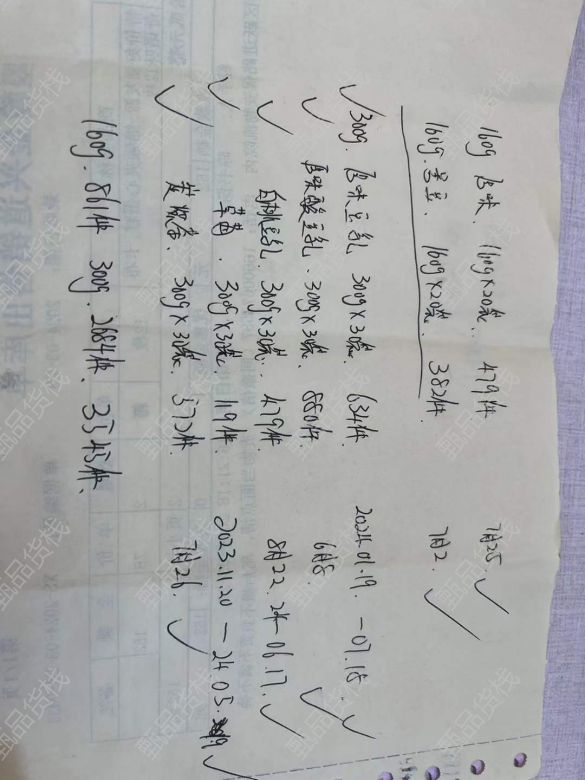 160g 原味. 160g×20袋. 479件 7月25 ✓
160g. 黑豆. 160g×20袋. 382件. 7月2. ✓
✓ 300g. 原味豆乳 300g×30袋. 634件 2024.01.19. —07.18. ✓
✓ 原味酸豆乳. 300g×30袋. 880件. 6月8 ✓
✓ 白桃豆乳. 300g×30袋. 479件. 8月22. 24—06.17. ✓
✓ 草莓. 300g×30袋. 119件. 2023.11.20 — 24.05. 19 ✓
✓ 300g×30袋. 572件. 7月26. ✓
160g. 861件 300g. 2684件. 3545件.
甄品货栈